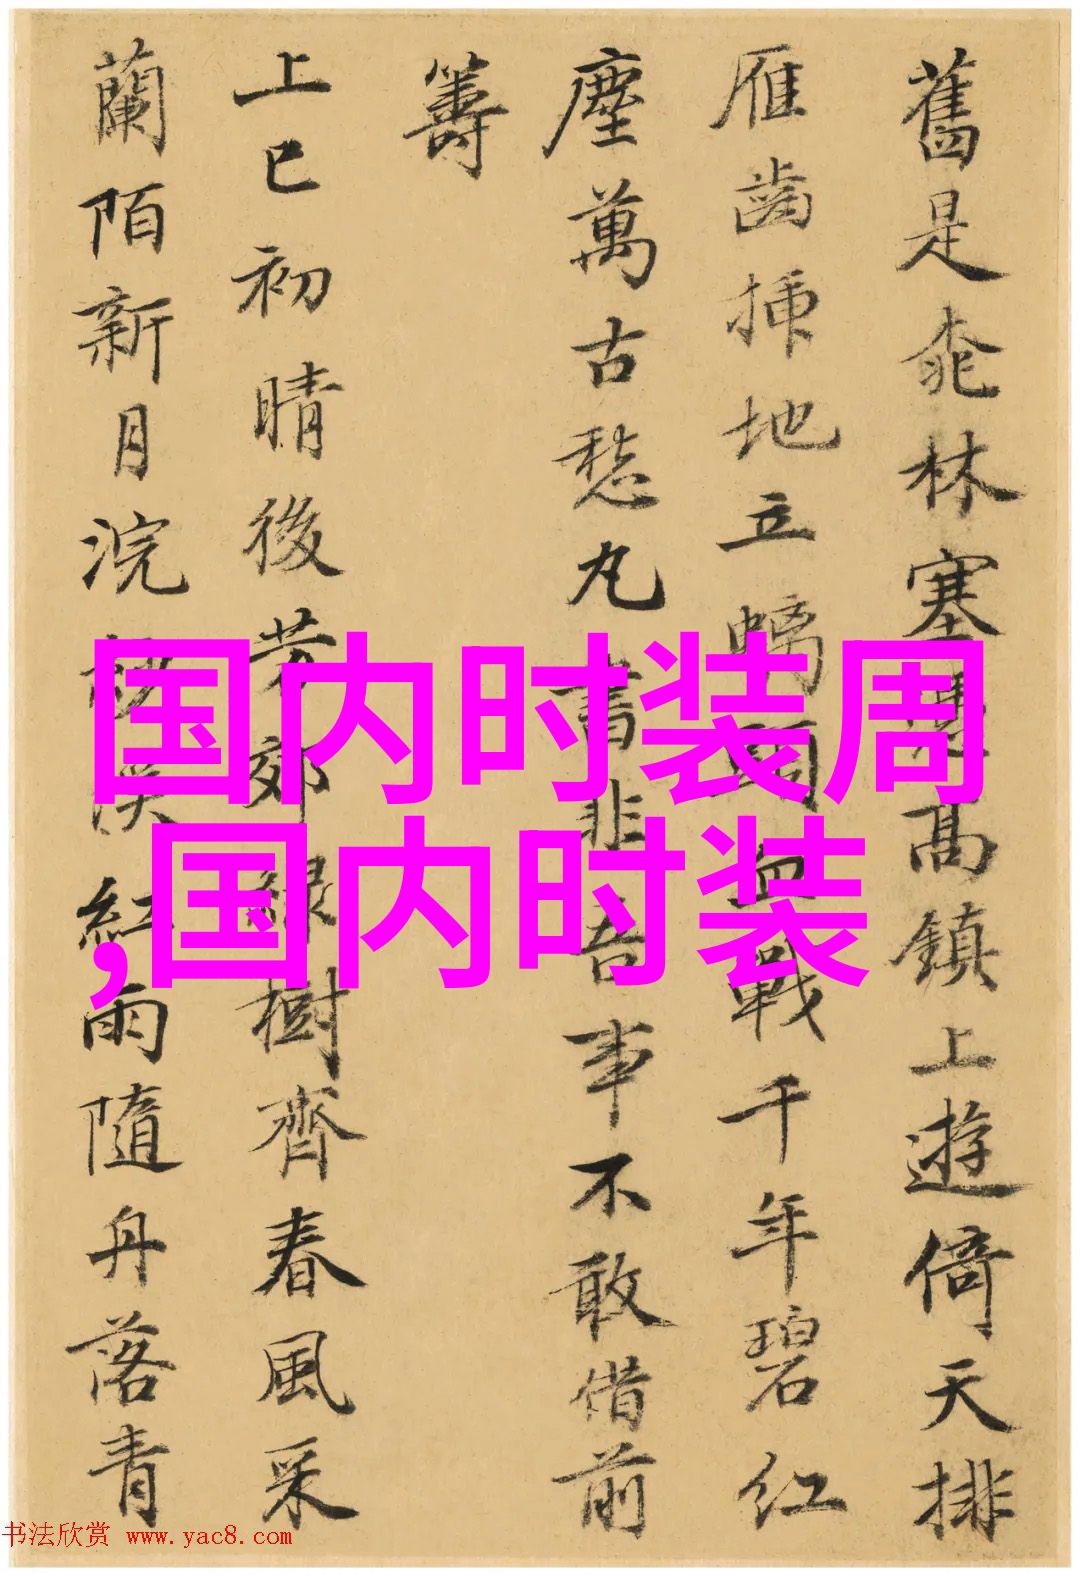 舊是桃林塞憑高鎮上遊倚天排
雁齒插地立螭頭血戰千年碧紅
塵萬古愁丸書非吾事不敢借前
籌
上巳初晴後芳郊綠樹齊春風采
蘭陌新月浣紗溪紅雨隨舟落青
国内时装周
,国内时装
书法欣赏 www.yac8.com